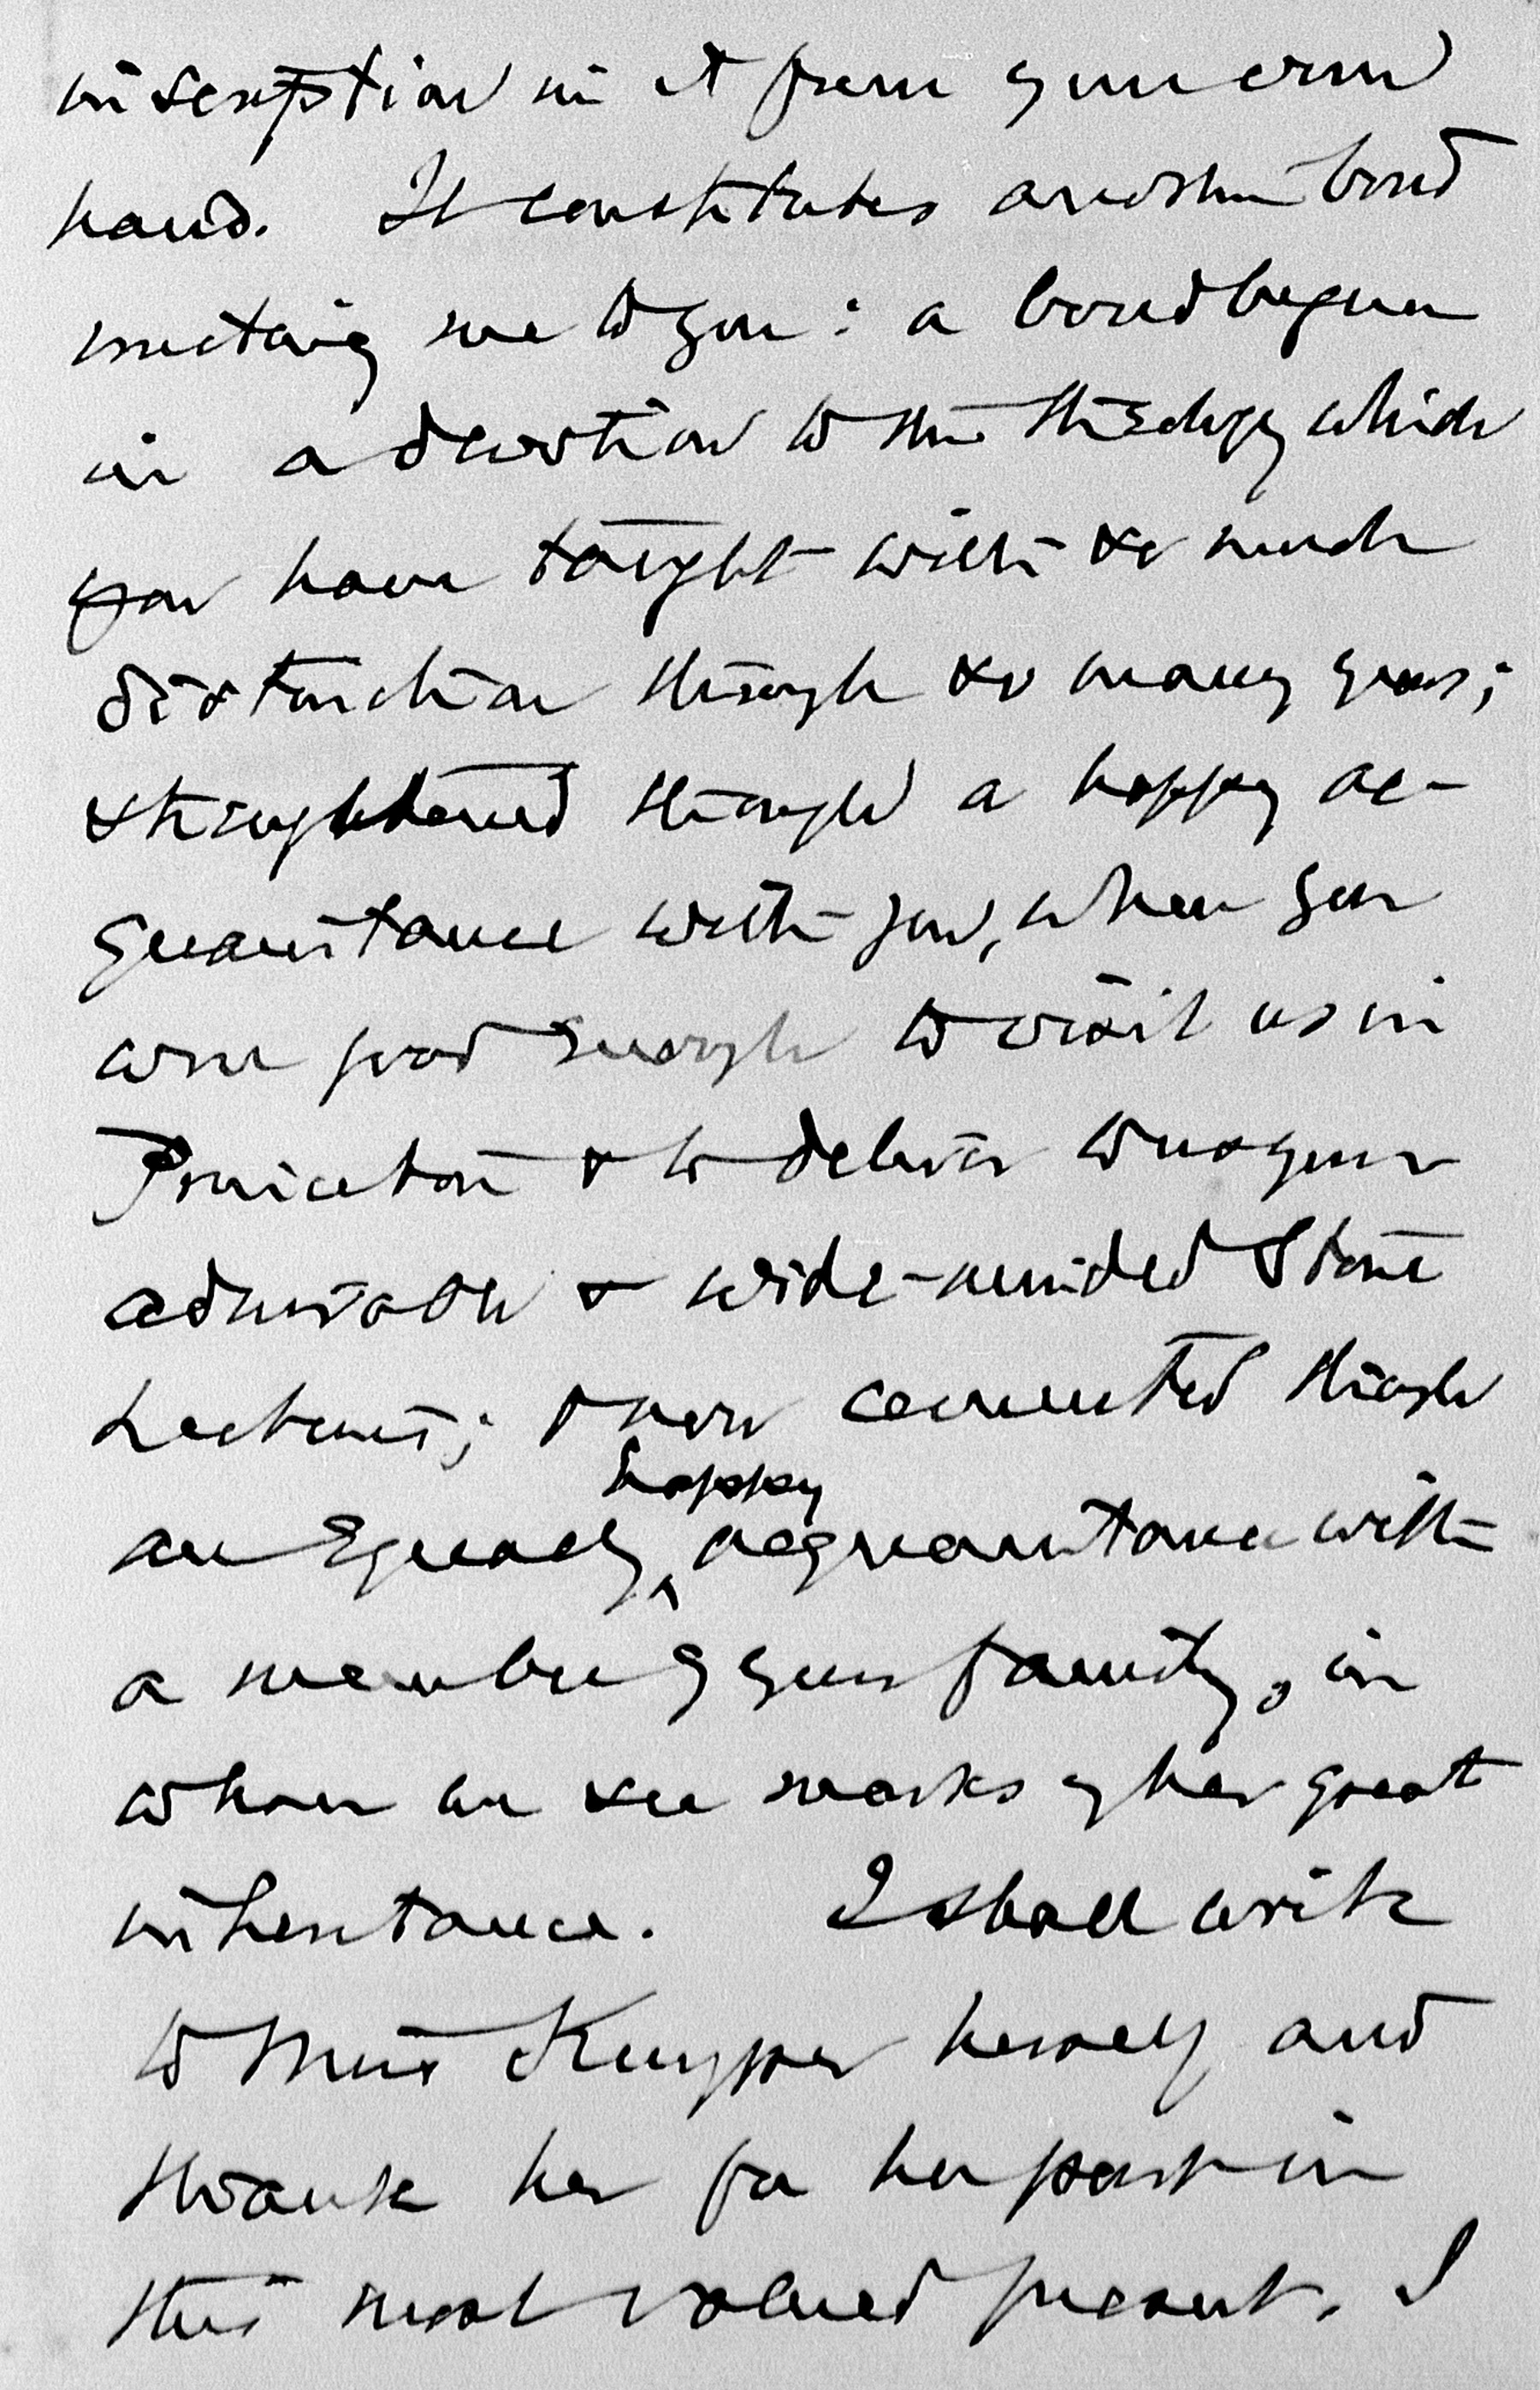 inscription in it from your own
hand. It constitutes another bond
uniting me to you: a bond begun
in a devotion to the theology which
you have taught with so much
distinction through so many years;
straightened through a happy ac-
quaintance with you, when you
were good enough to visit us in
Princeton & to deliver to us your
admirable & wide-minded Stone
Lectures; & now cemented through
an equally happy acquaintance with
a member of your family, in
whom we see marks of her great
inheritance. I shall write
to Miss Kuyper herself and
thank her for her part in
this most valued present. I